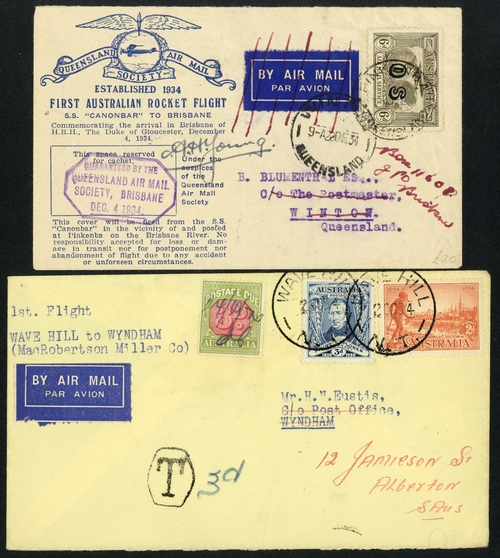 QUEENSLAND AIR MAIL
SOCIETY
ESTABLISHED 1934
FIRST AUSTRALIAN ROCKET FLIGHT
S.S. "CANONBAR" TO BRISBANE
Commemorating the arrival in Brisbane of
H.R.H., The Duke of Gloucester, December
4, 1934.
This space reserved
for cachet.
Under the
auspices
of the
Queensland
Air Mail
Society
GUARANTEED BY THE
QUEENSLAND AIR MAIL
SOCIETY, BRISBANE
DEC. 4 1934
This cover will be fired from the S.S.
"Canonbar" in the vicinity of and posted
at Pinkenba on the Brisbane River. No
responsibility accepted for loss or dam-
age in transit nor for postponement nor
abandonment of flight due to any accident
or unforseen circumstances.
BY AIR MAIL
PAR AVION
OS
QUEENSLAND
B. BLUMENTHAL ESQ.,
C/o The Postmaster,
WINTON.
Queensland.
Box 1160R
G.P.O.
Brisbane
£30
1st. Flight
WAVE HILL to WYNDHAM
(MacRobertson Miller Co)
BY AIR MAIL
PAR AVION
POSTAGE DUE
AUSTRALIA
AUSTRALIA
WAVE HILL
N.T.
WAVE HILL
12 OC 34
N.T.
AUSTRALIA
Mr.H.N.Eustis,
C/o Post Office,
WYNDHAM
12 Jamieson St
Alberton
S Aus
T
3d